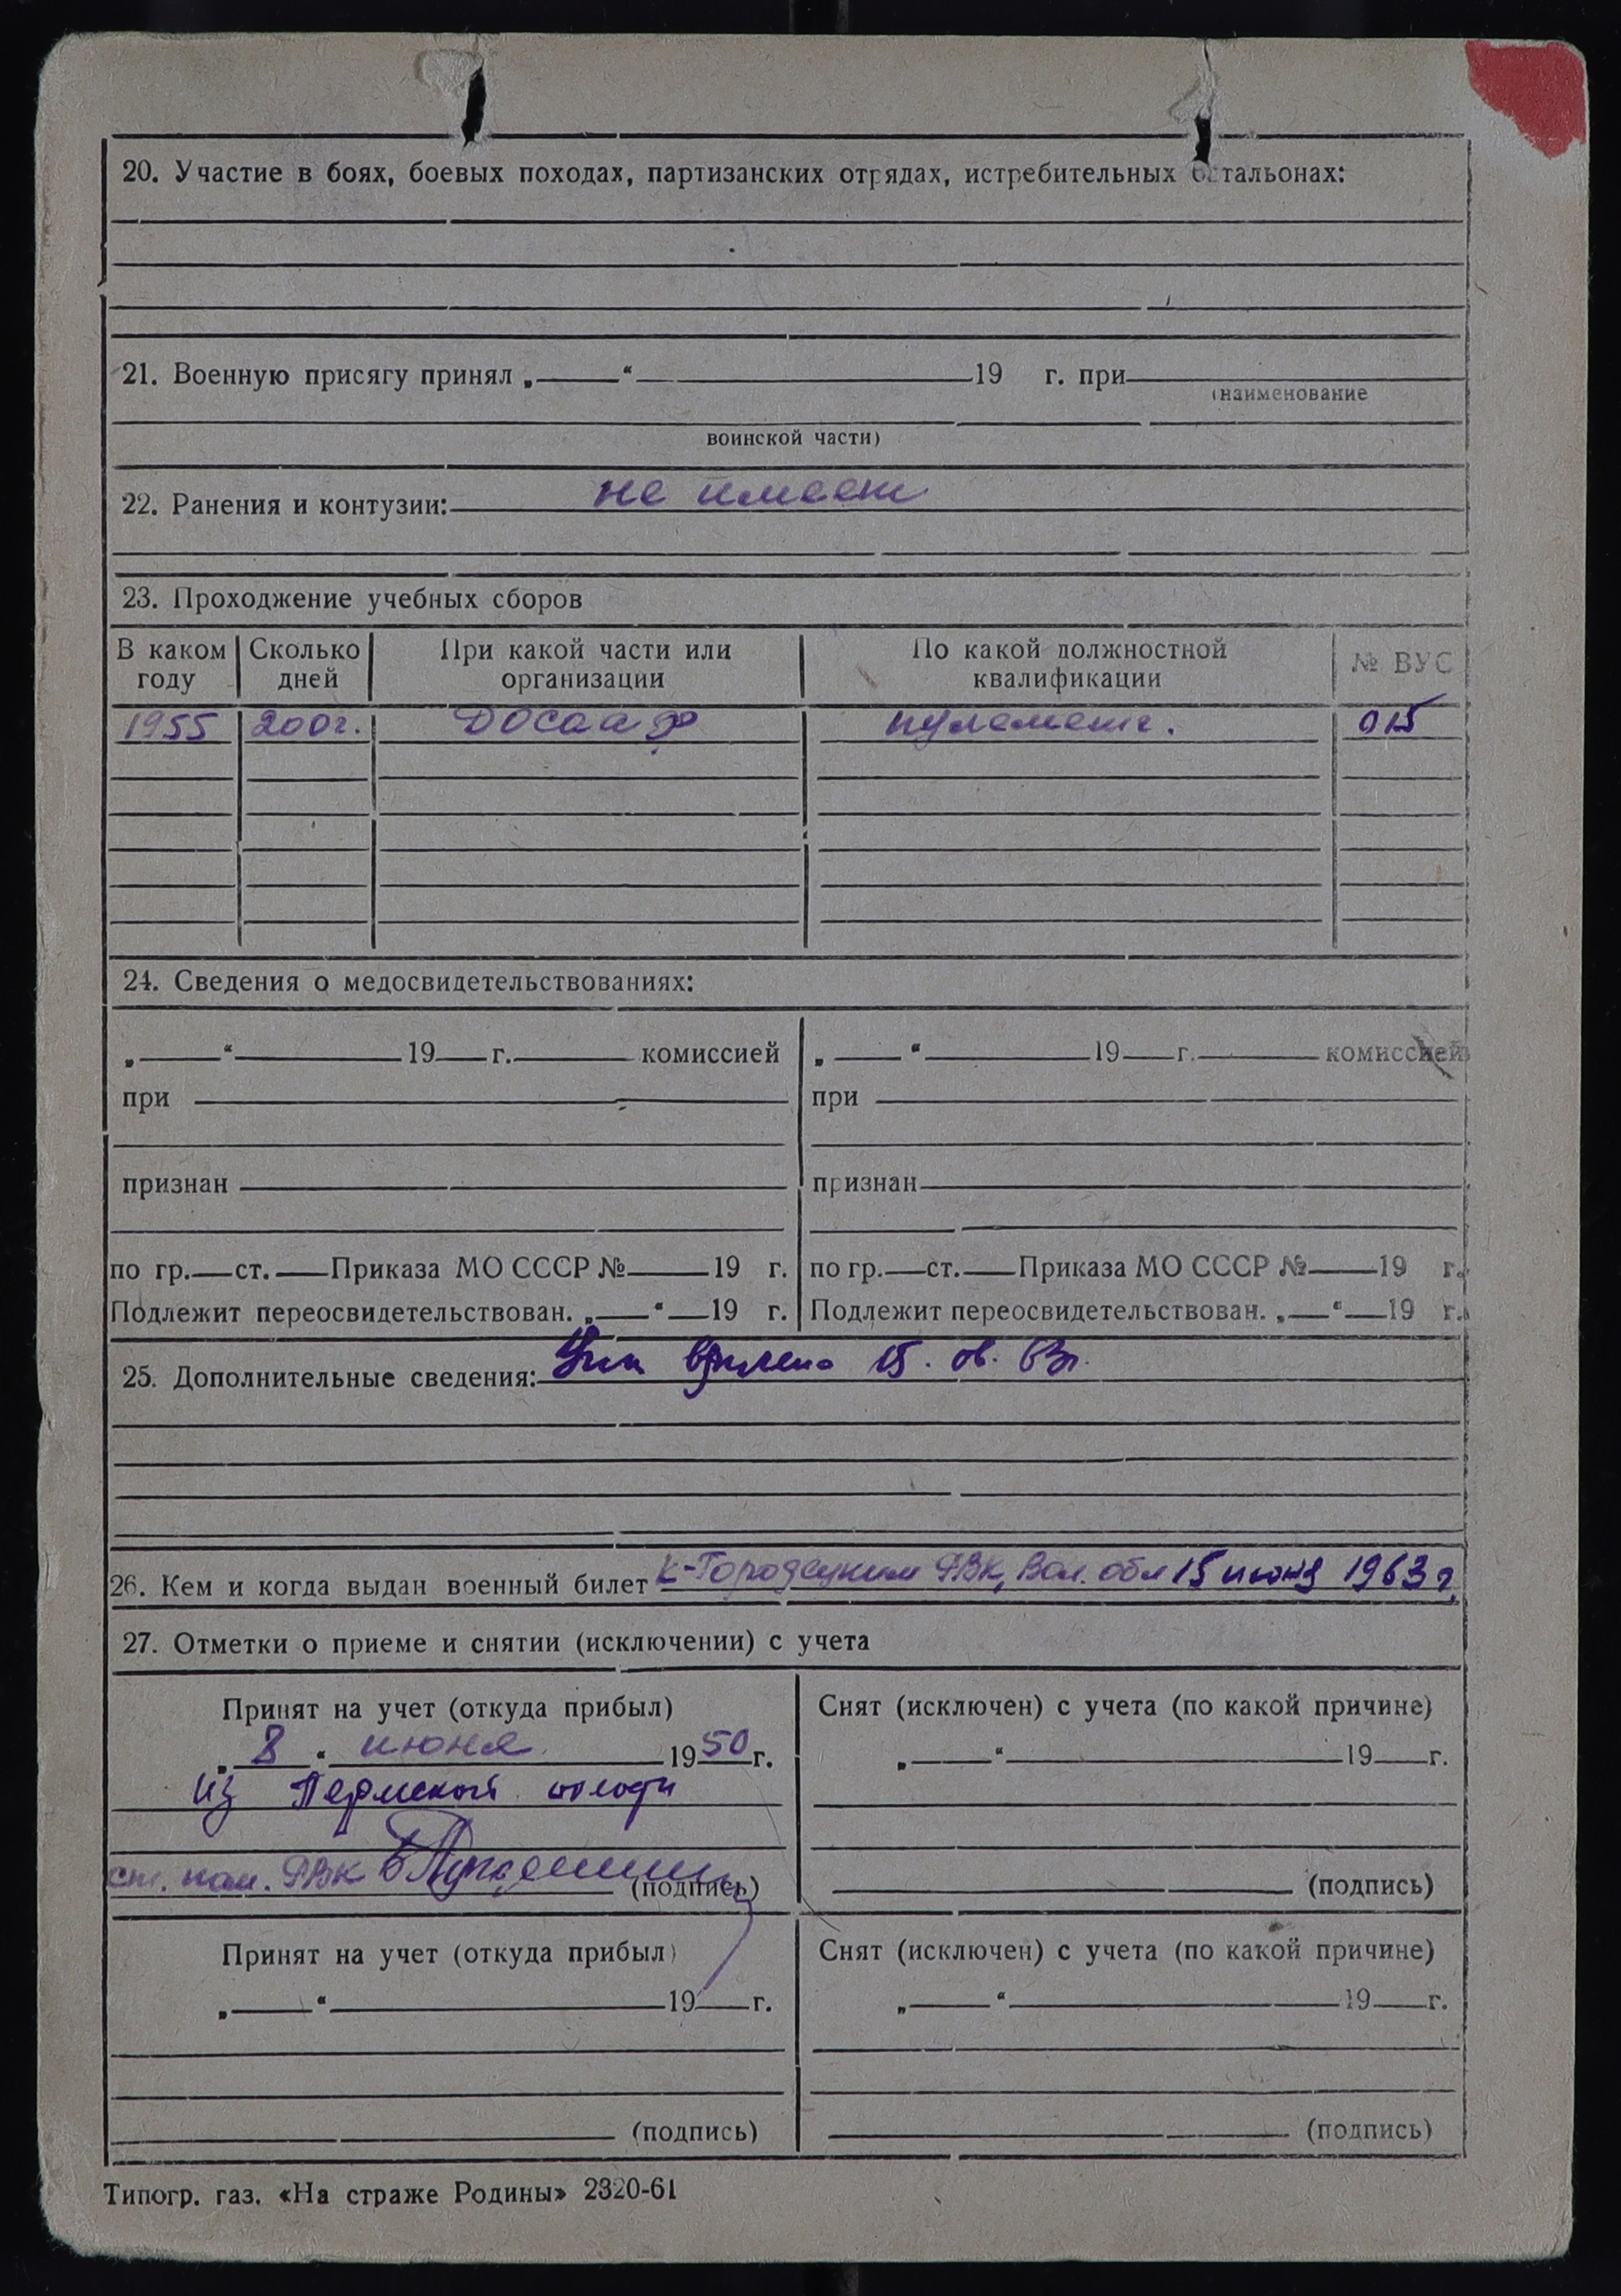 20. Участие в боях, боевых походах, партизанских отрядах, истребительных батальонах:
21. Военную присягу принял „ “ 19 г. при
(наименование
воинской части)
22. Ранения и контузии: не имеет
23. Проходжение учебных сборов
В каком году Сколько дней При какой части или организации По какой должностной квалификации № ВУС
1955 200г. ДОСААФ пулеметч. 015
24. Сведения о медосвидетельствованиях:
„ “ 19 г. комиссией „ “ 19 г. комиссией
при при
признан признан
по гр. ст. Приказа МО СССР № 19 г. по гр. ст. Приказа МО СССР № 19 г.
Подлежит переосвидетельствован. „ “ 19 г. Подлежит переосвидетельствован. „ “ 19 г.
25. Дополнительные сведения: 15. 06. 63г.
26. Кем и когда выдан военный билет К-Городецким РВК, Вол. обл 15 июня 1963 г.
27. Отметки о приеме и снятии (исключении) с учета
Принят на учет (откуда прибыл) Снят (исключен) с учета (по какой причине)
„ 8 “ июня 1950 г. „ “ 19 г.
из Пермской области
ст. пом. РВК (подпись) (подпись)
Принят на учет (откуда прибыл) Снят (исключен) с учета (по какой причине)
„ “ 19 г. „ “ 19 г.
(подпись) (подпись)
Типогр. газ. «На страже Родины» 2320-61